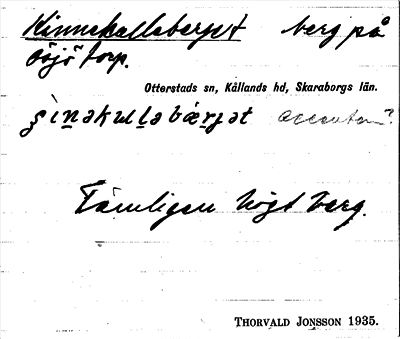 Kinnekulleberget berg på
Osjötorp.
Otterstads sn, Kållands hd, Skaraborgs län.
accenten?
Tämligen högt berg.
THORVALD JONSSON 1935.